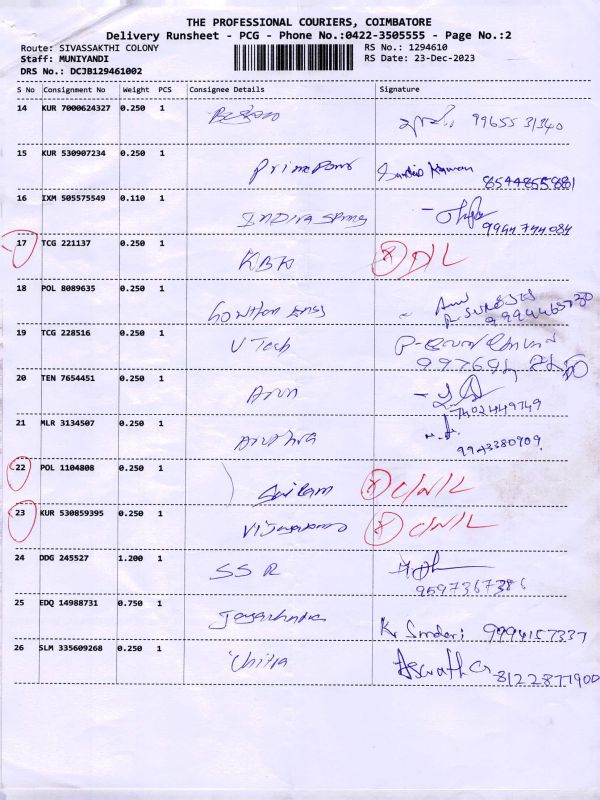 THE PROFESSIONAL COURIERS, COIMBATORE
Delivery Runsheet - PCG - Phone No.:0422-3505555 - Page No.:2
Route: SIVASSAKTHI COLONY RS No.: 1294610
Staff: MUNIYANDI RS Date: 23-Dec-2023
DRS No.: DCJB129461002
S No Consignment No Weight PCS Consignee Details Signature
14 KUR 7000624327 0.250 1
15 KUR 530907234 0.250 1
8544855881
16 IXM 505575549 0.110 1
9944744084
17 TCG 221137 0.250 1
KBK D/L
18 POL 8089635 0.250 1
19 TCG 228516 0.250 1
U Tech
20 TEN 7654451 0.250 1
Arun
7402449749
21 MLR 3134507 0.250 1
9943380909
22 POL 1104808 0.250 1
Sairam C/N/L
23 KUR 530859395 0.250 1
C/N/L
24 DDG 245527 1.200 1
SSR
9597367386
25 EDQ 14988731 0.750 1
9994157337
26 SLM 335609268 0.250 1
Chitra
8122877900